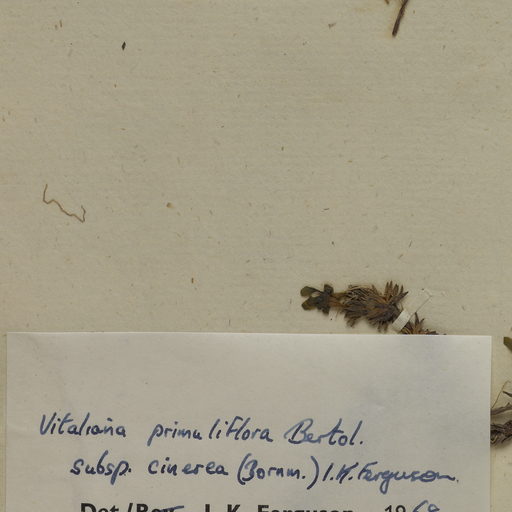 Vitaliana primuliflora Bertol.
subsp. cinerea (Bornm.) I.K. Ferguson.
Det./Rev. I. K. Ferguson 1969